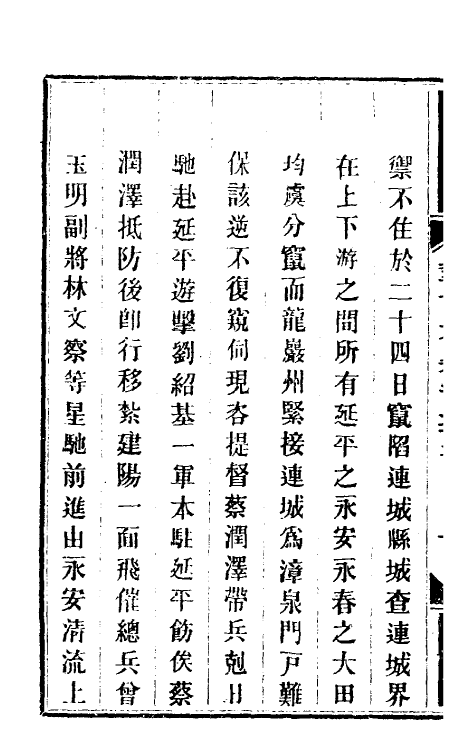 禦不住於二十四日竄陷連城縣城查連城界
在上下游之間所有延平之永安永春之大田
均虞分竄而龍巖州緊接連城爲漳泉門戸難
保該逆不復窺伺現咨提督蔡潤澤帶兵剋日
馳赴延平遊擊劉紹基一軍本駐延平飭俟蔡
潤澤抵防後卽行移紮建陽一面飛催總兵曾
玉明副將林文察等星馳前進由永安清流上